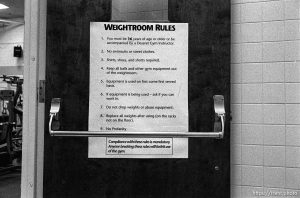 WEIGHTROOM RULES
1. You must be 16 years of age or older or be
accompanied by a Deseret Gym Instructor.
2. No swimsuits or street clothes.
3. Shirts, shoes, and shorts required.
4. Keep all balls and other gym equipment out
of the weightroom.
5. Equipment is used on first come first served
basis.
6. If equipment is being used - ask if you can
work in.
7. Do not drop weights or abuse equipment.
8. Replace all weights after using (on the racks
not on the floor).
9. No Profanity.
Compliance with these rules is mandatory.
out of the gym.